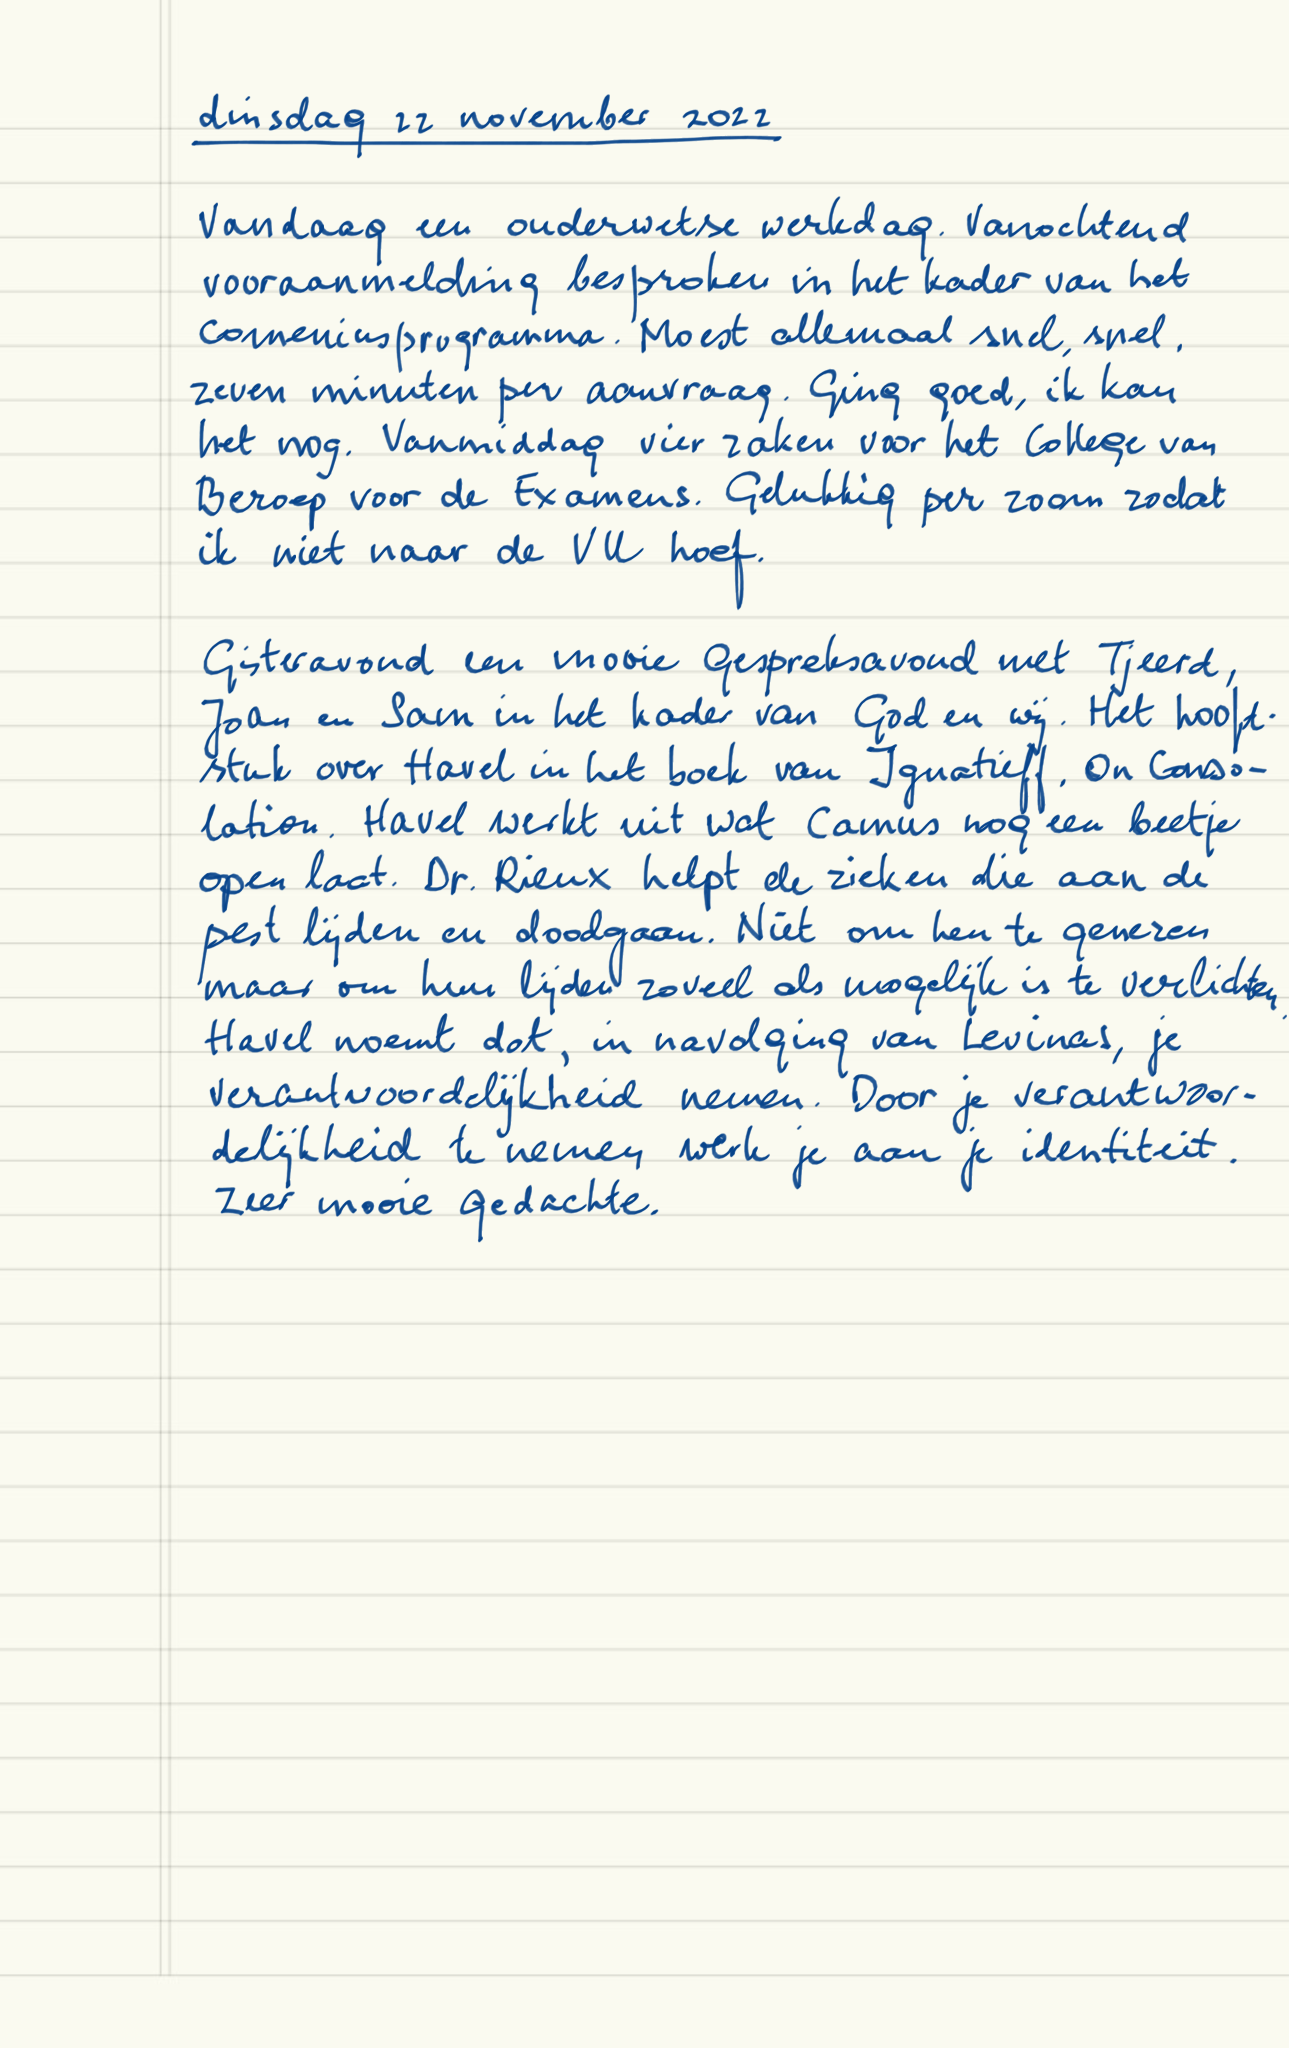 dinsdag 22 november 2022
Vandaag een ouderwetse werkdag. Vanochtend
vooraanmelding besproken in het kader van het
Comeniusprogramma. Moest allemaal snel, snel,
zeven minuten per aanvraag. Ging goed, ik kan
het nog. Vanmiddag vier zaken voor het College van
Beroep voor de Examens. Gelukkig per zoom zodat
ik niet naar de VU hoef.
Gisteravond een mooie gespreksavond met Tjeerd,
Joan en Sam in het kader van God en wij. Het hoofd-
stuk over Havel in het boek van Ignatieff, On Conso-
lation. Havel werkt uit wat Camus nog een beetje
open laat. Dr. Rieux helpt de zieken die aan de
pest lijden en doodgaan. Niet om hen te genezen
maar om hun lijden zoveel als mogelijk is te verlichten.
Havel noemt dat, in navolging van Levinas, je
verantwoordelijkheid nemen. Door je verantwoor-
delijkheid te nemen werk je aan je identiteit.
Zeer mooie gedachte.